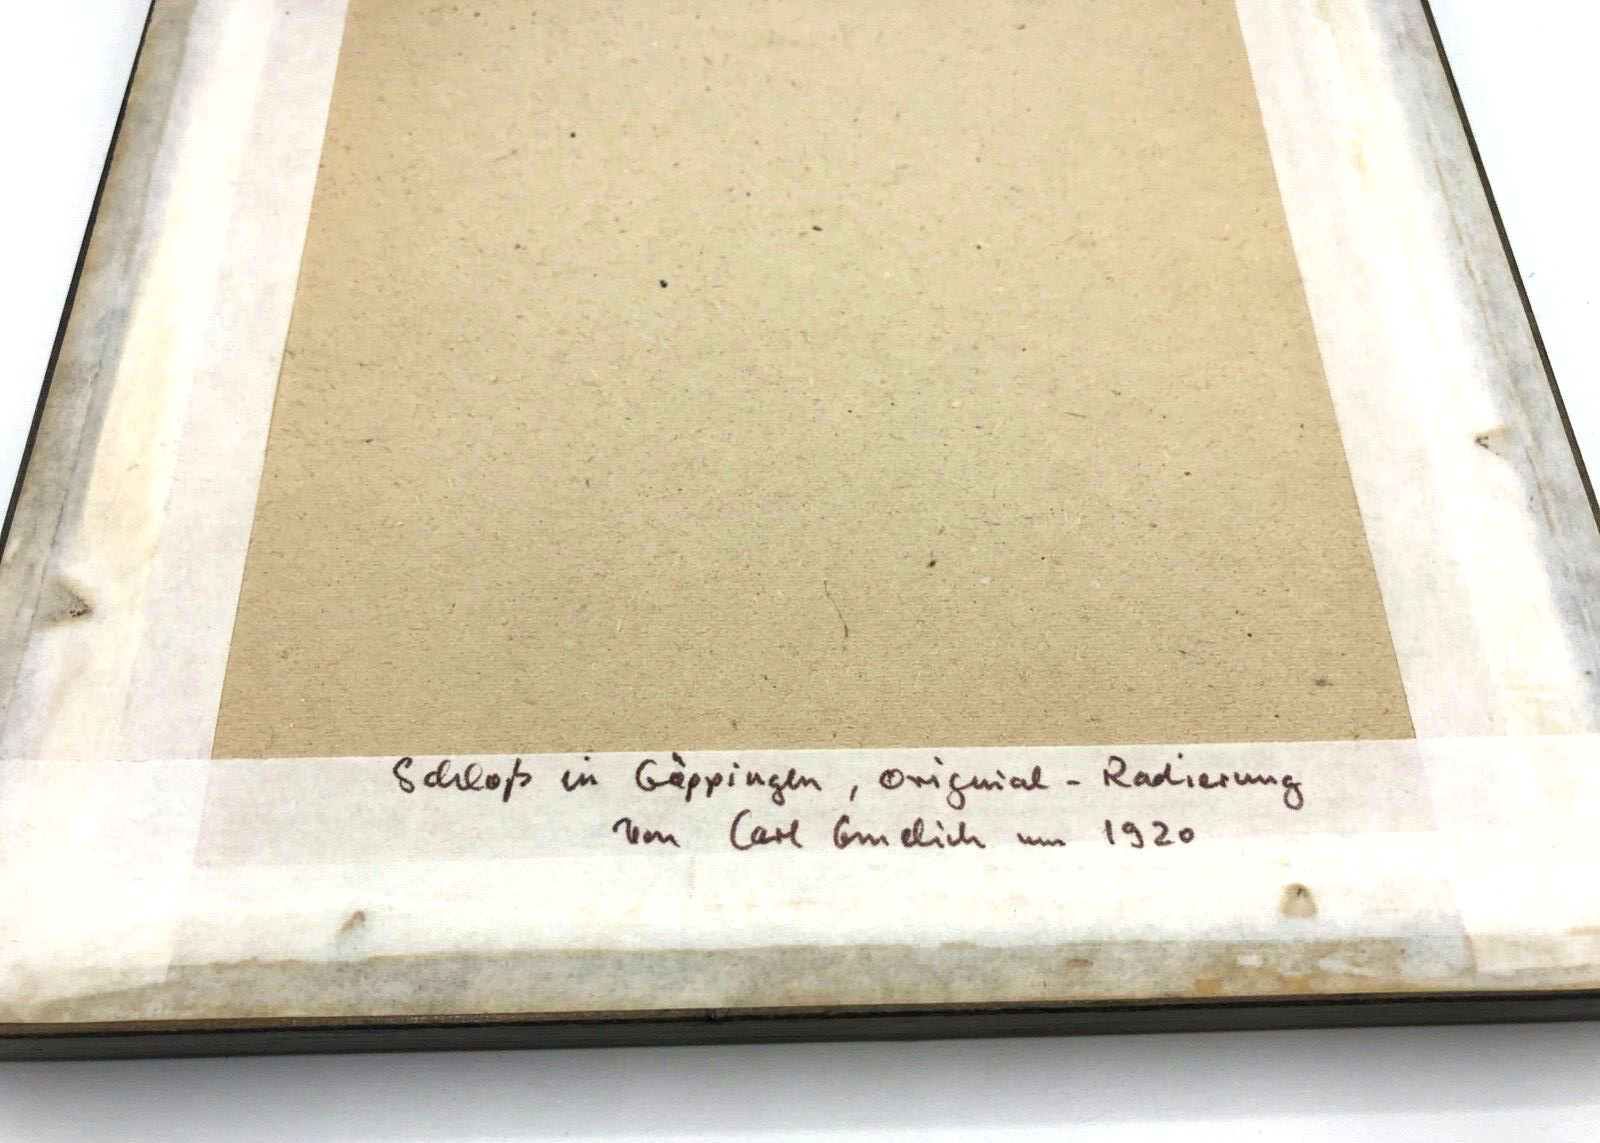 Schloß in Göppingen, Original - Radierung
von Carl um 1920